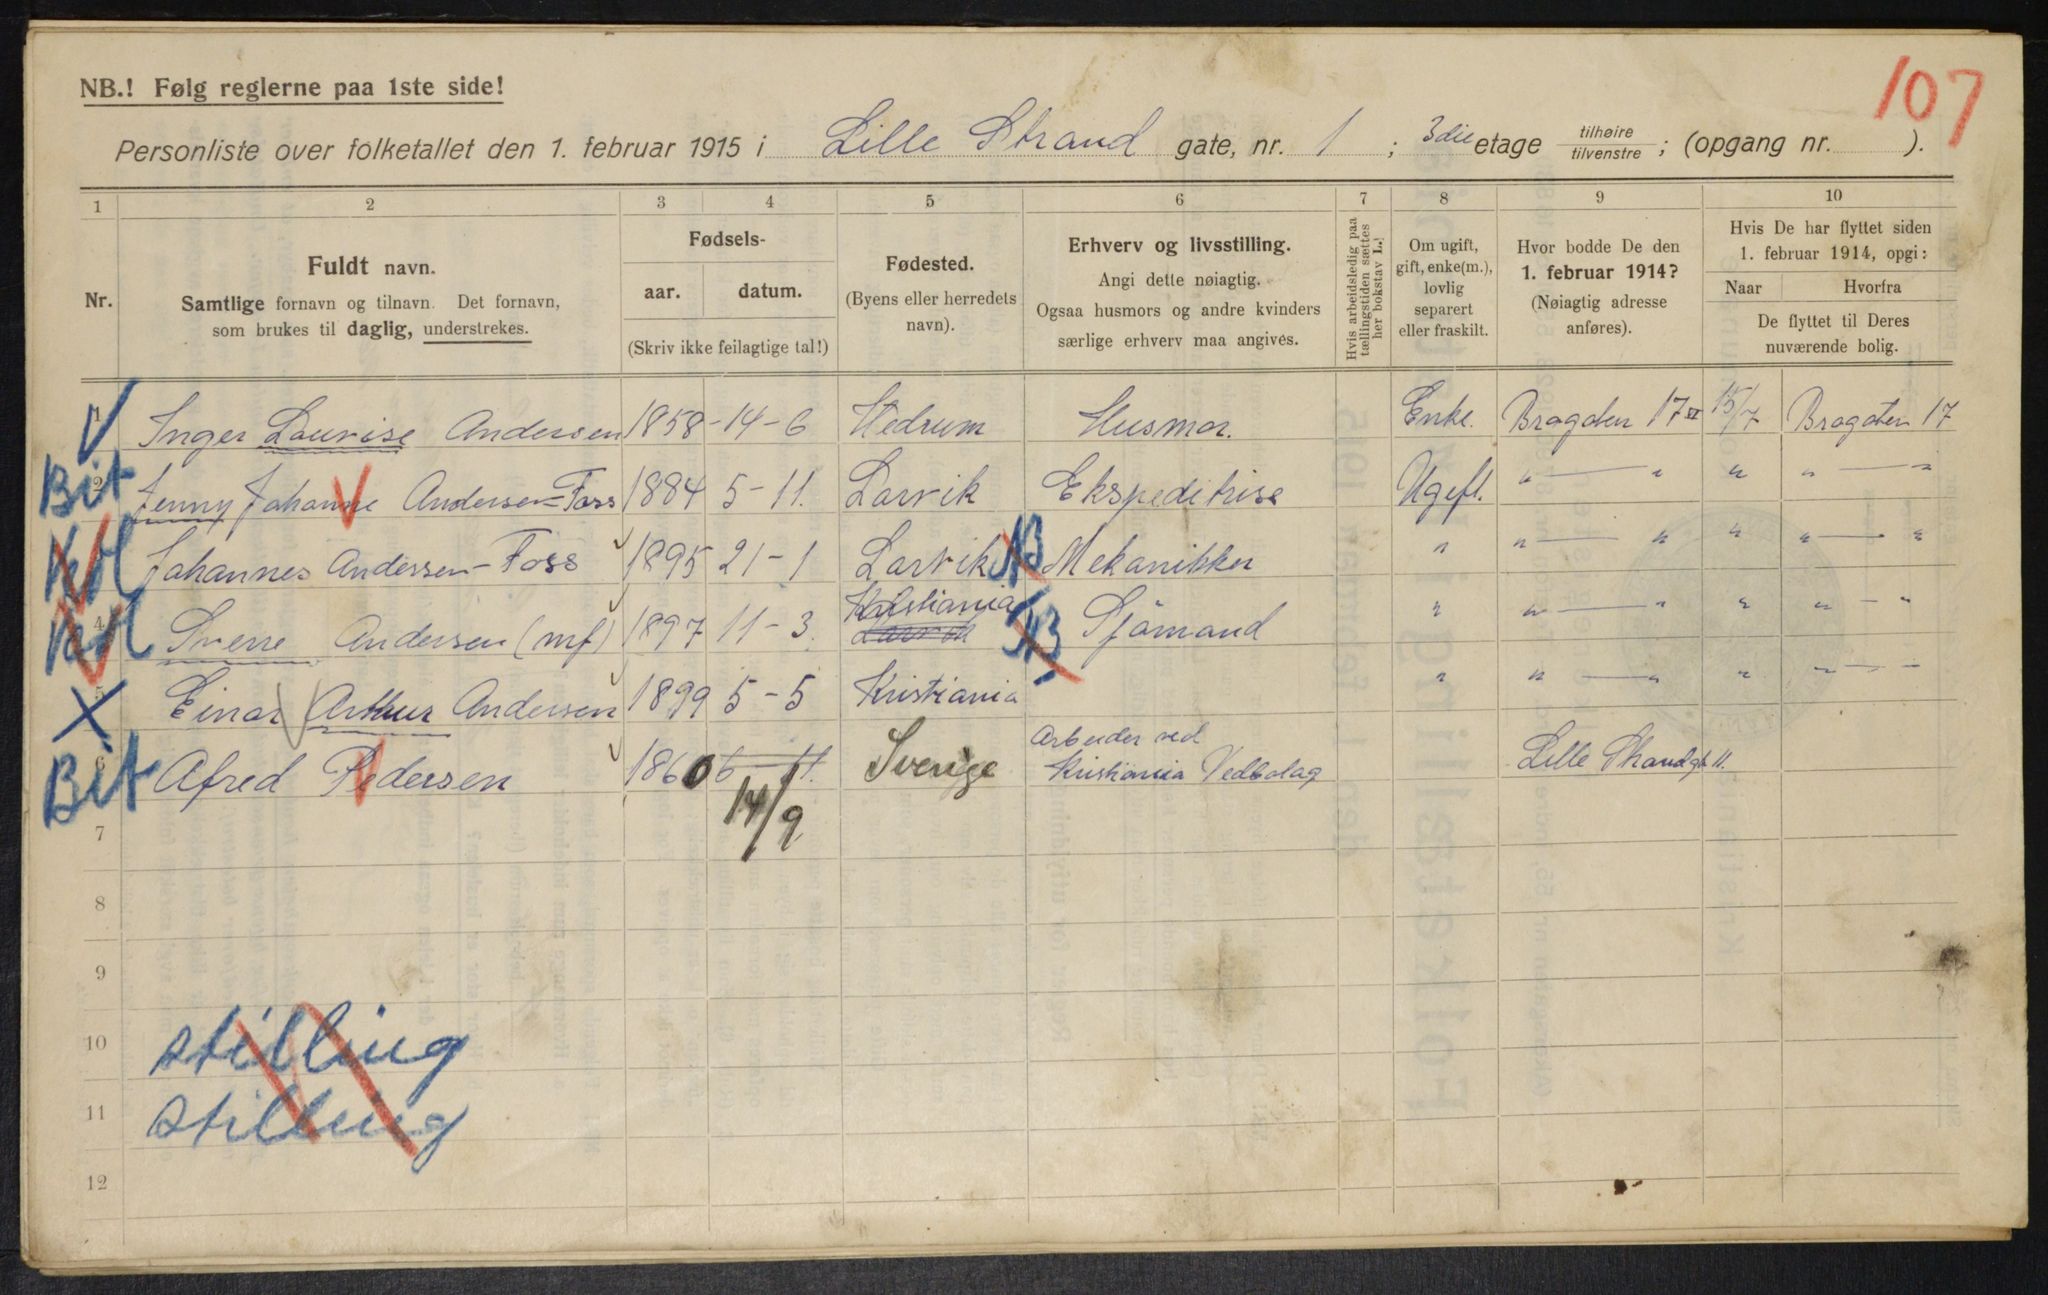 107
NB.! Følg reglerne paa 1ste side!
Personliste over folketallet den 1. februar 1915 i Lille Strand gate, nr. 1 ; 3die etage tilhøire / tilvenstre ; (opgang nr. ).
1 2 3 4 5 6 7 8 9 10
Nr.
Fuldt navn.
Samtlige fornavn og tilnavn. Det fornavn,
som brukes til daglig, understrekes.
Fødsels-
aar. datum.
(Skriv ikke feilagtige tal!)
Fødested.
(Byens eller herredets
navn).
Erhverv og livsstilling.
Angi dette nøiagtig.
Ogsaa husmors og andre kvinders
særlige erhverv maa angives.
Hvis arbeidsledig paa
tællingstiden sættes
her bokstav L.!
Om ugift,
gift, enke(m.),
lovlig
separert
eller fraskilt.
Hvor bodde De den
1. februar 1914?
(Nøiagtig adresse
anføres).
Hvis De har flyttet siden
1. februar 1914, opgi:
Naar Hvorfra
De flyttet til Deres
nuværende bolig.
1 Inger Lourise Andersen 1858 - 14 - 6 Hedrum Husmor. Enke. Bragaten 17 VI 15/7 Bragaten 17
Bit 2 Jenny Johanne Andersen-Foss 1884 5 - 11. Larvik Ekspeditrise Ugift. " — " " " — "
Kol Johannes Andersen-Foss 1895 21 - 1 Larvik NB Mekanikker " " — " " " — "
Kol 4 Sverre Andersen (mf) 1897 11 - 3. Kristiania Larvik NB Sjömand " " — " " " — "
X 5 Einar Arthur Andersen 1899 5 - 5 Kristiania " " — " " " — "
Bit 6 Afred Pedersen 1860 6 - 11. 14/9 Sverige Arbeider ved
Kristiania Vedbolag Lille Strandgt 11.
7
8
9
10 stilling
11 stilling
12